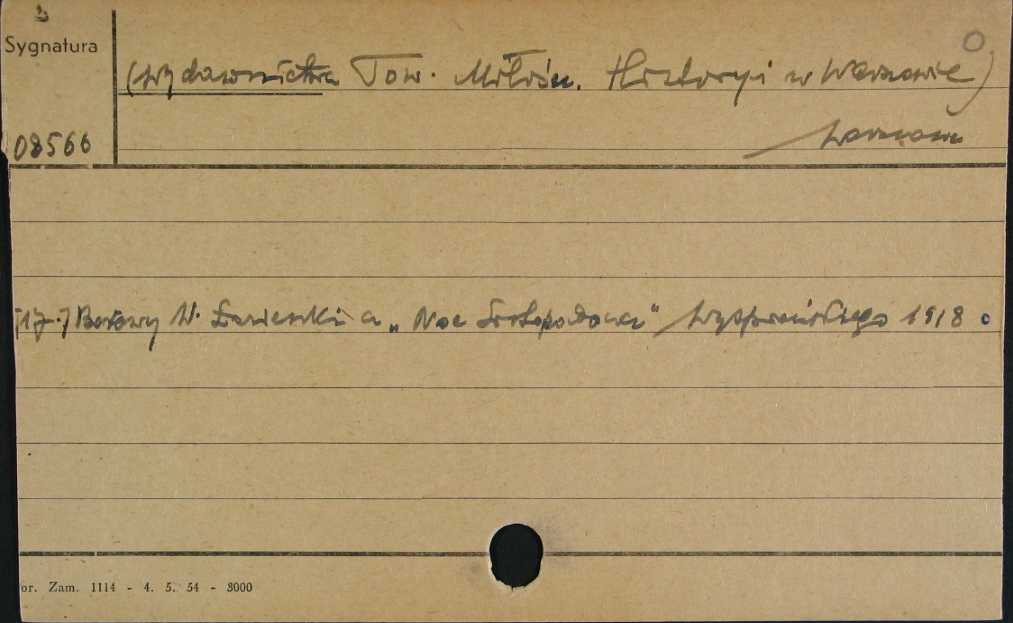 Sygnatura
(Wydawnictwa Tow. Miłośn. Historyi w Warszawie)
08566
Warszawa
[17.] Borowy W. Łazienki a „Noc Listopadowa" Wyspiańskiego 1918
or. Zam. 1114 - 4. 5. 54 - 3000